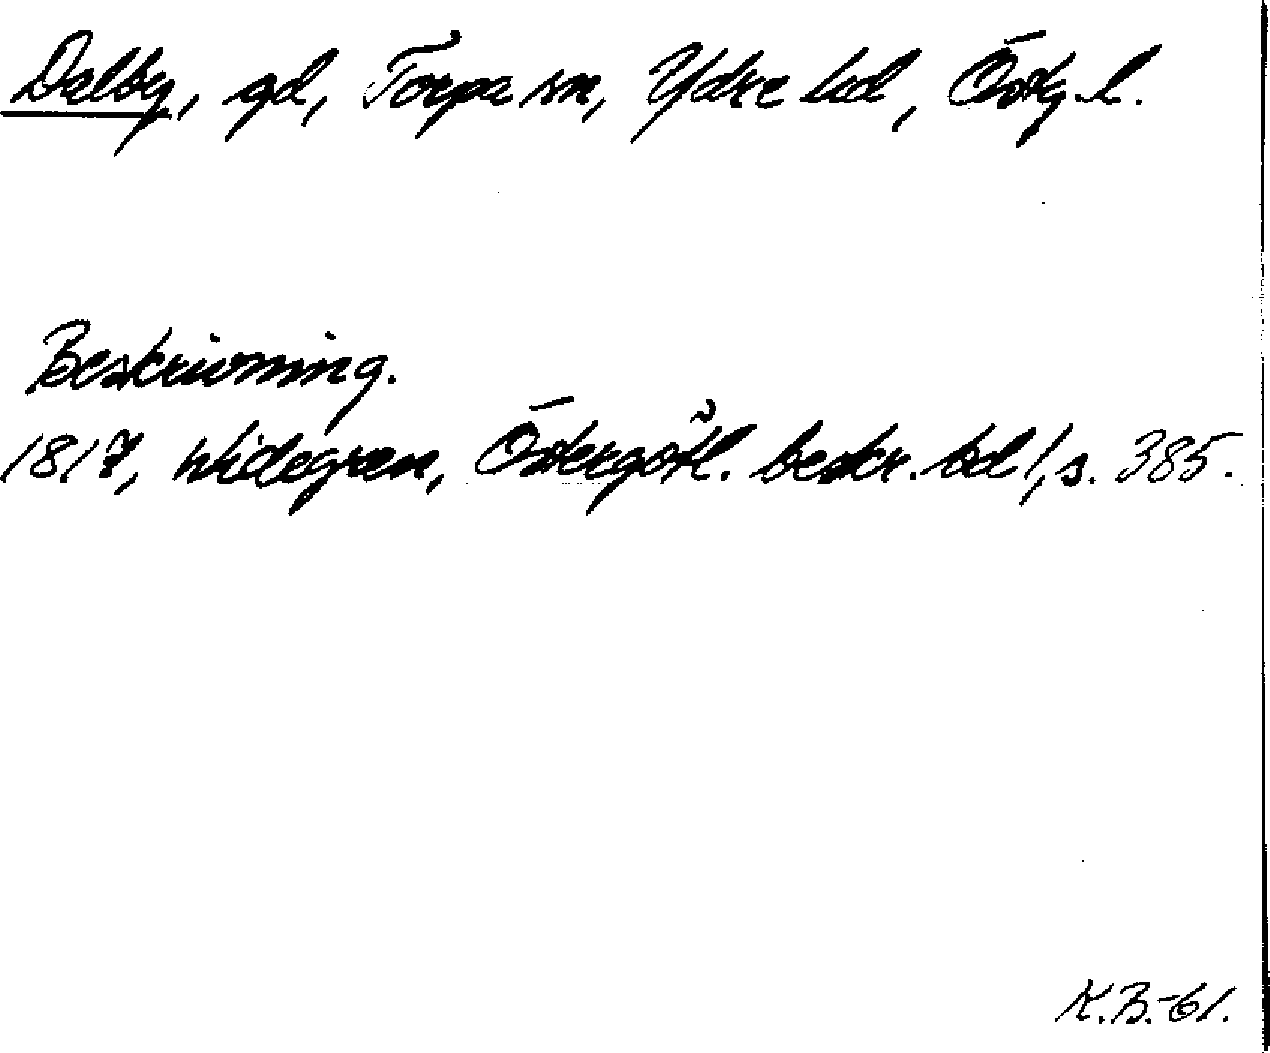 Dalby, gd, Torpa sn, Ydre hd, Östg. l.
Beskrivning.
1817, Widegren, Östergötl. beskr. bd 1, s. 385.
K.B.-61.